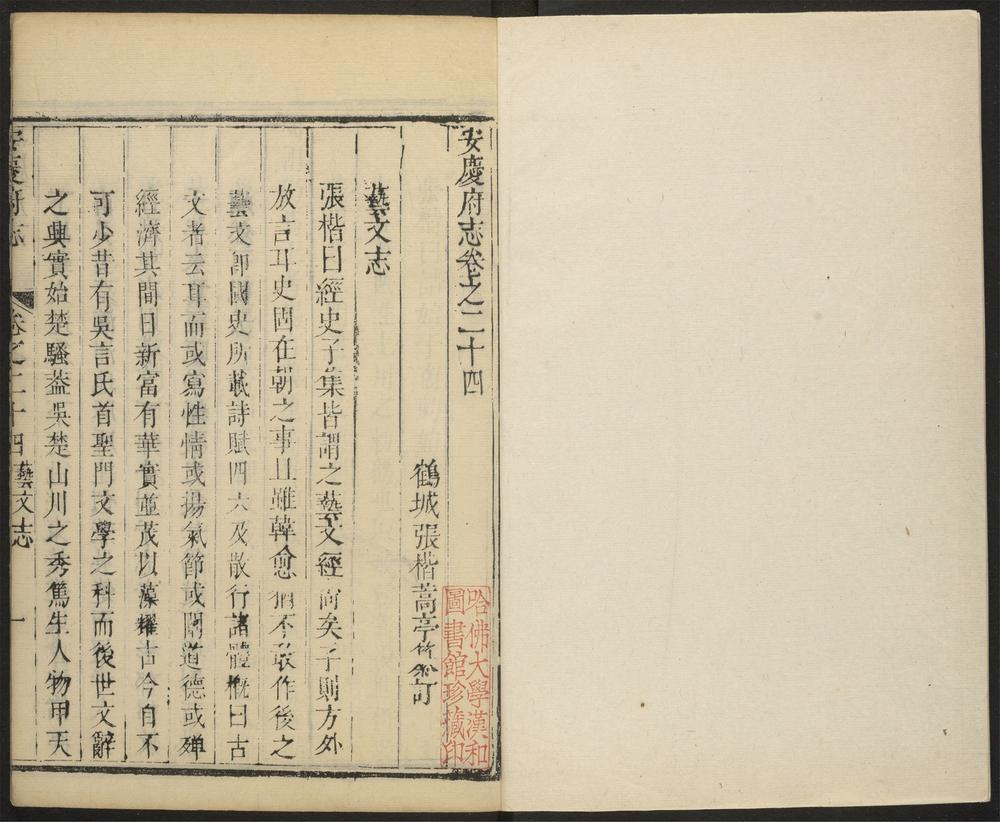 安慶府志卷之二十四
鶴城張楷蒿亭 訂
哈佛大學漢和
圖書館珍藏印
藝文志
張楷曰經史子集皆謂之藝文經尚矣子則方外
放言耳史固在朝之事且雖韓愈猶不敢作後之
藝文即國史所載詩賦四六及散行諸體概曰古
文者云耳而或寫性情或揚氣節或闡道德或殫
經濟其間日新富有華實並茂以藻耀古今自不
可少昔有吳言氏首聖門文學之科而後世文辭
之興實始楚騷葢吳楚山川之秀篤生人物甲天
安慶府志
卷之二十四
藝文志
一